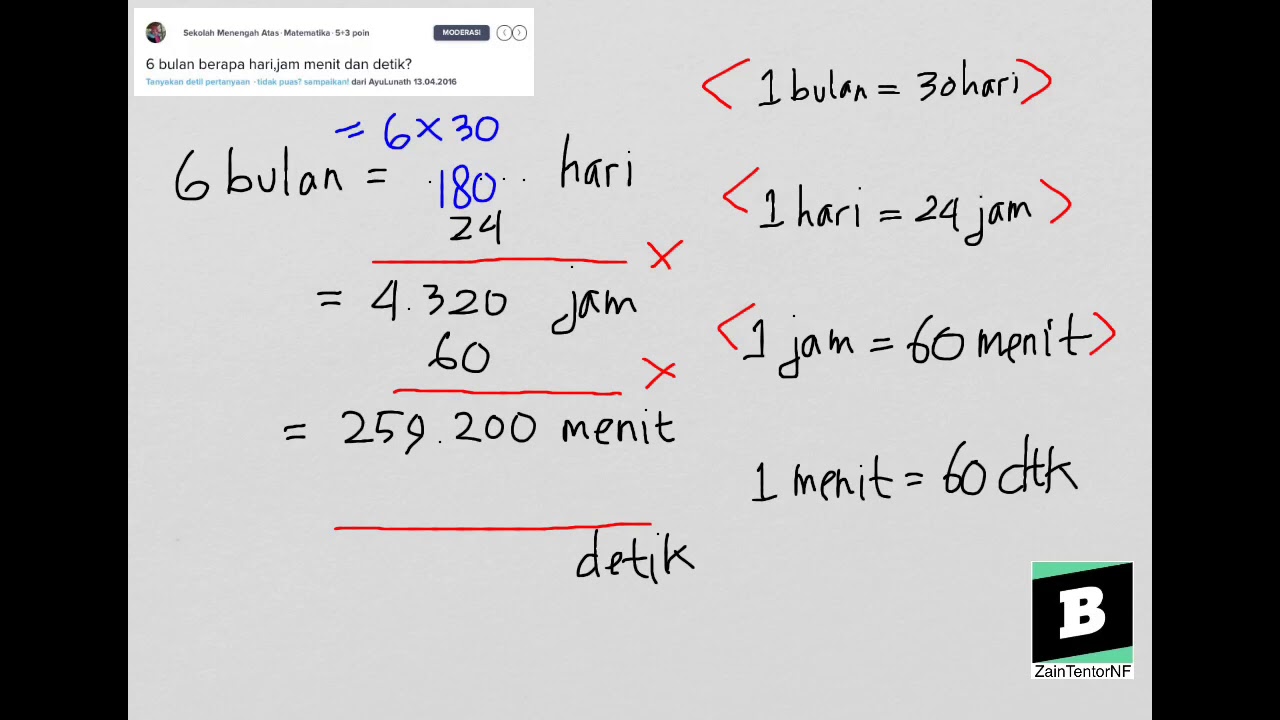 Sekolah Menengah Atas · Matematika · 5+3 poin
MODERASI
6 bulan berapa hari,jam menit dan detik?
Tanyakan detil pertanyaan · tidak puas? sampaikan! dari AyuLunath 13.04.2016
= 6 × 30
6 bulan = 180 hari
24
×
= 4.320 jam
60
×
= 259.200 menit
detik
<1 bulan = 30 hari>
<1 hari = 24 jam>
<1 jam = 60 menit>
1 menit = 60 dtk
B
ZainTentorNF